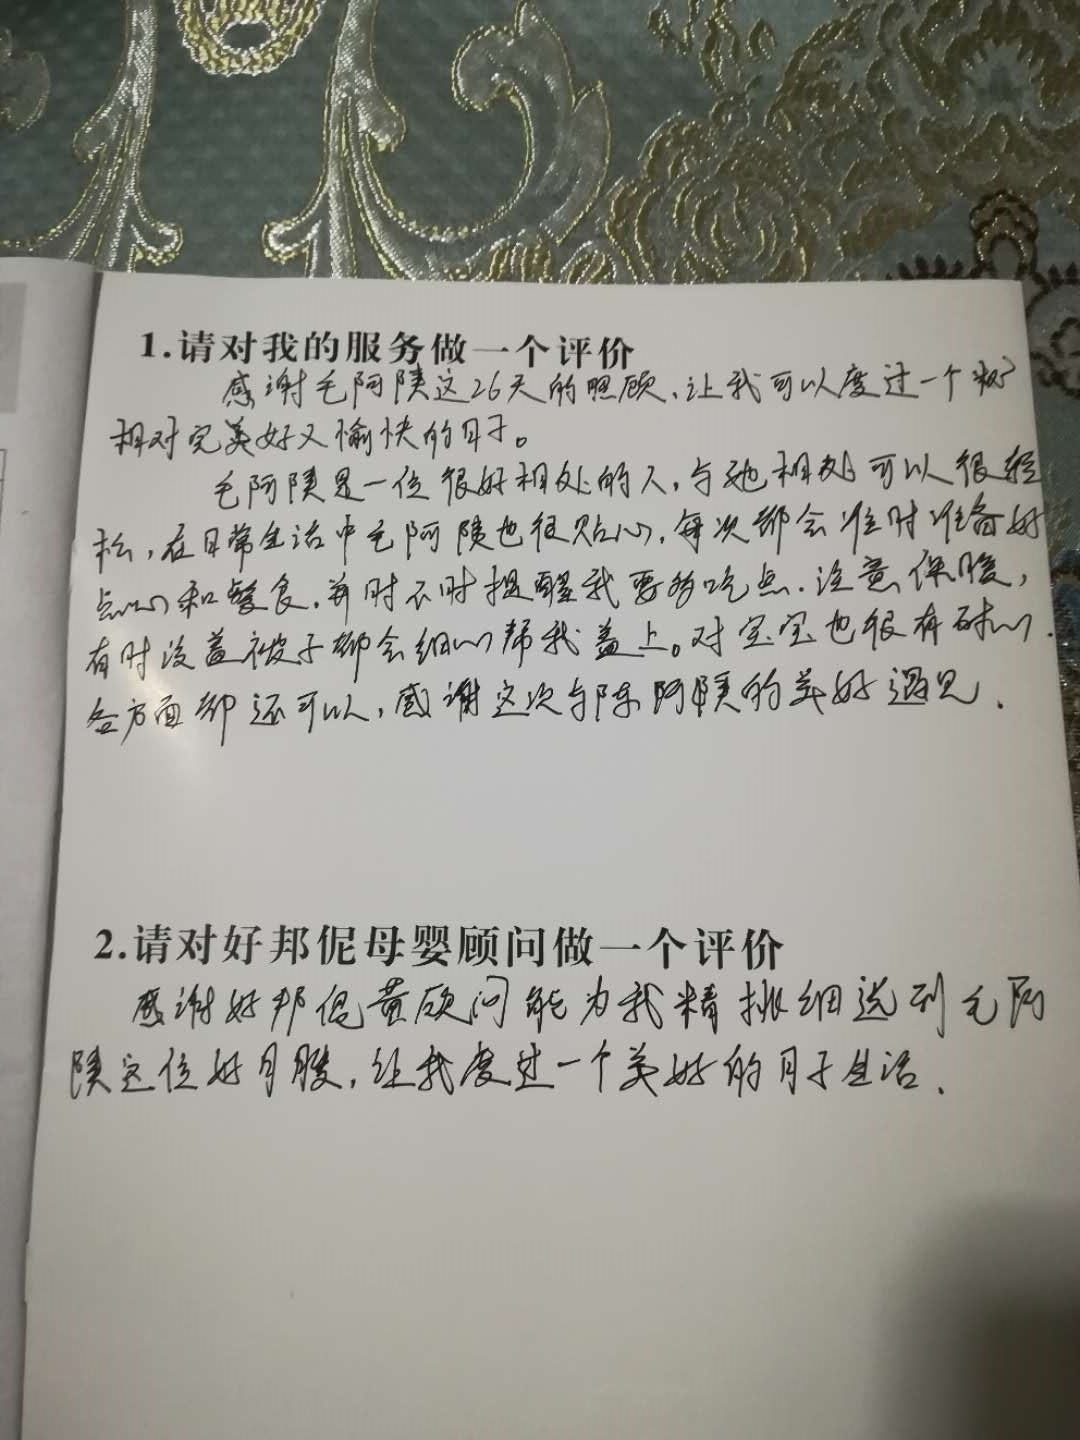 1.请对我的服务做一个评价
感谢毛阿姨这26天的照顾,让我可以度过一个
相对完美好又愉快的月子。
毛阿姨是一位很好相处的人,与她相处可以很轻
松,在日常生活中毛阿姨也很贴心,每次都会准时准备好
点心和餐食,并时不时提醒我要多吃点.注意保暖,
有时没盖被子都会细心帮我盖上。对宝宝也很有耐心.
各方面都还可以,感谢这次与陈阿姨的美好遇见.
2.请对好邦伲母婴顾问做一个评价
感谢好邦伲黄顾问能为我精挑细选到毛阿
姨这位好月嫂,让我度过一个美好的月子生活.